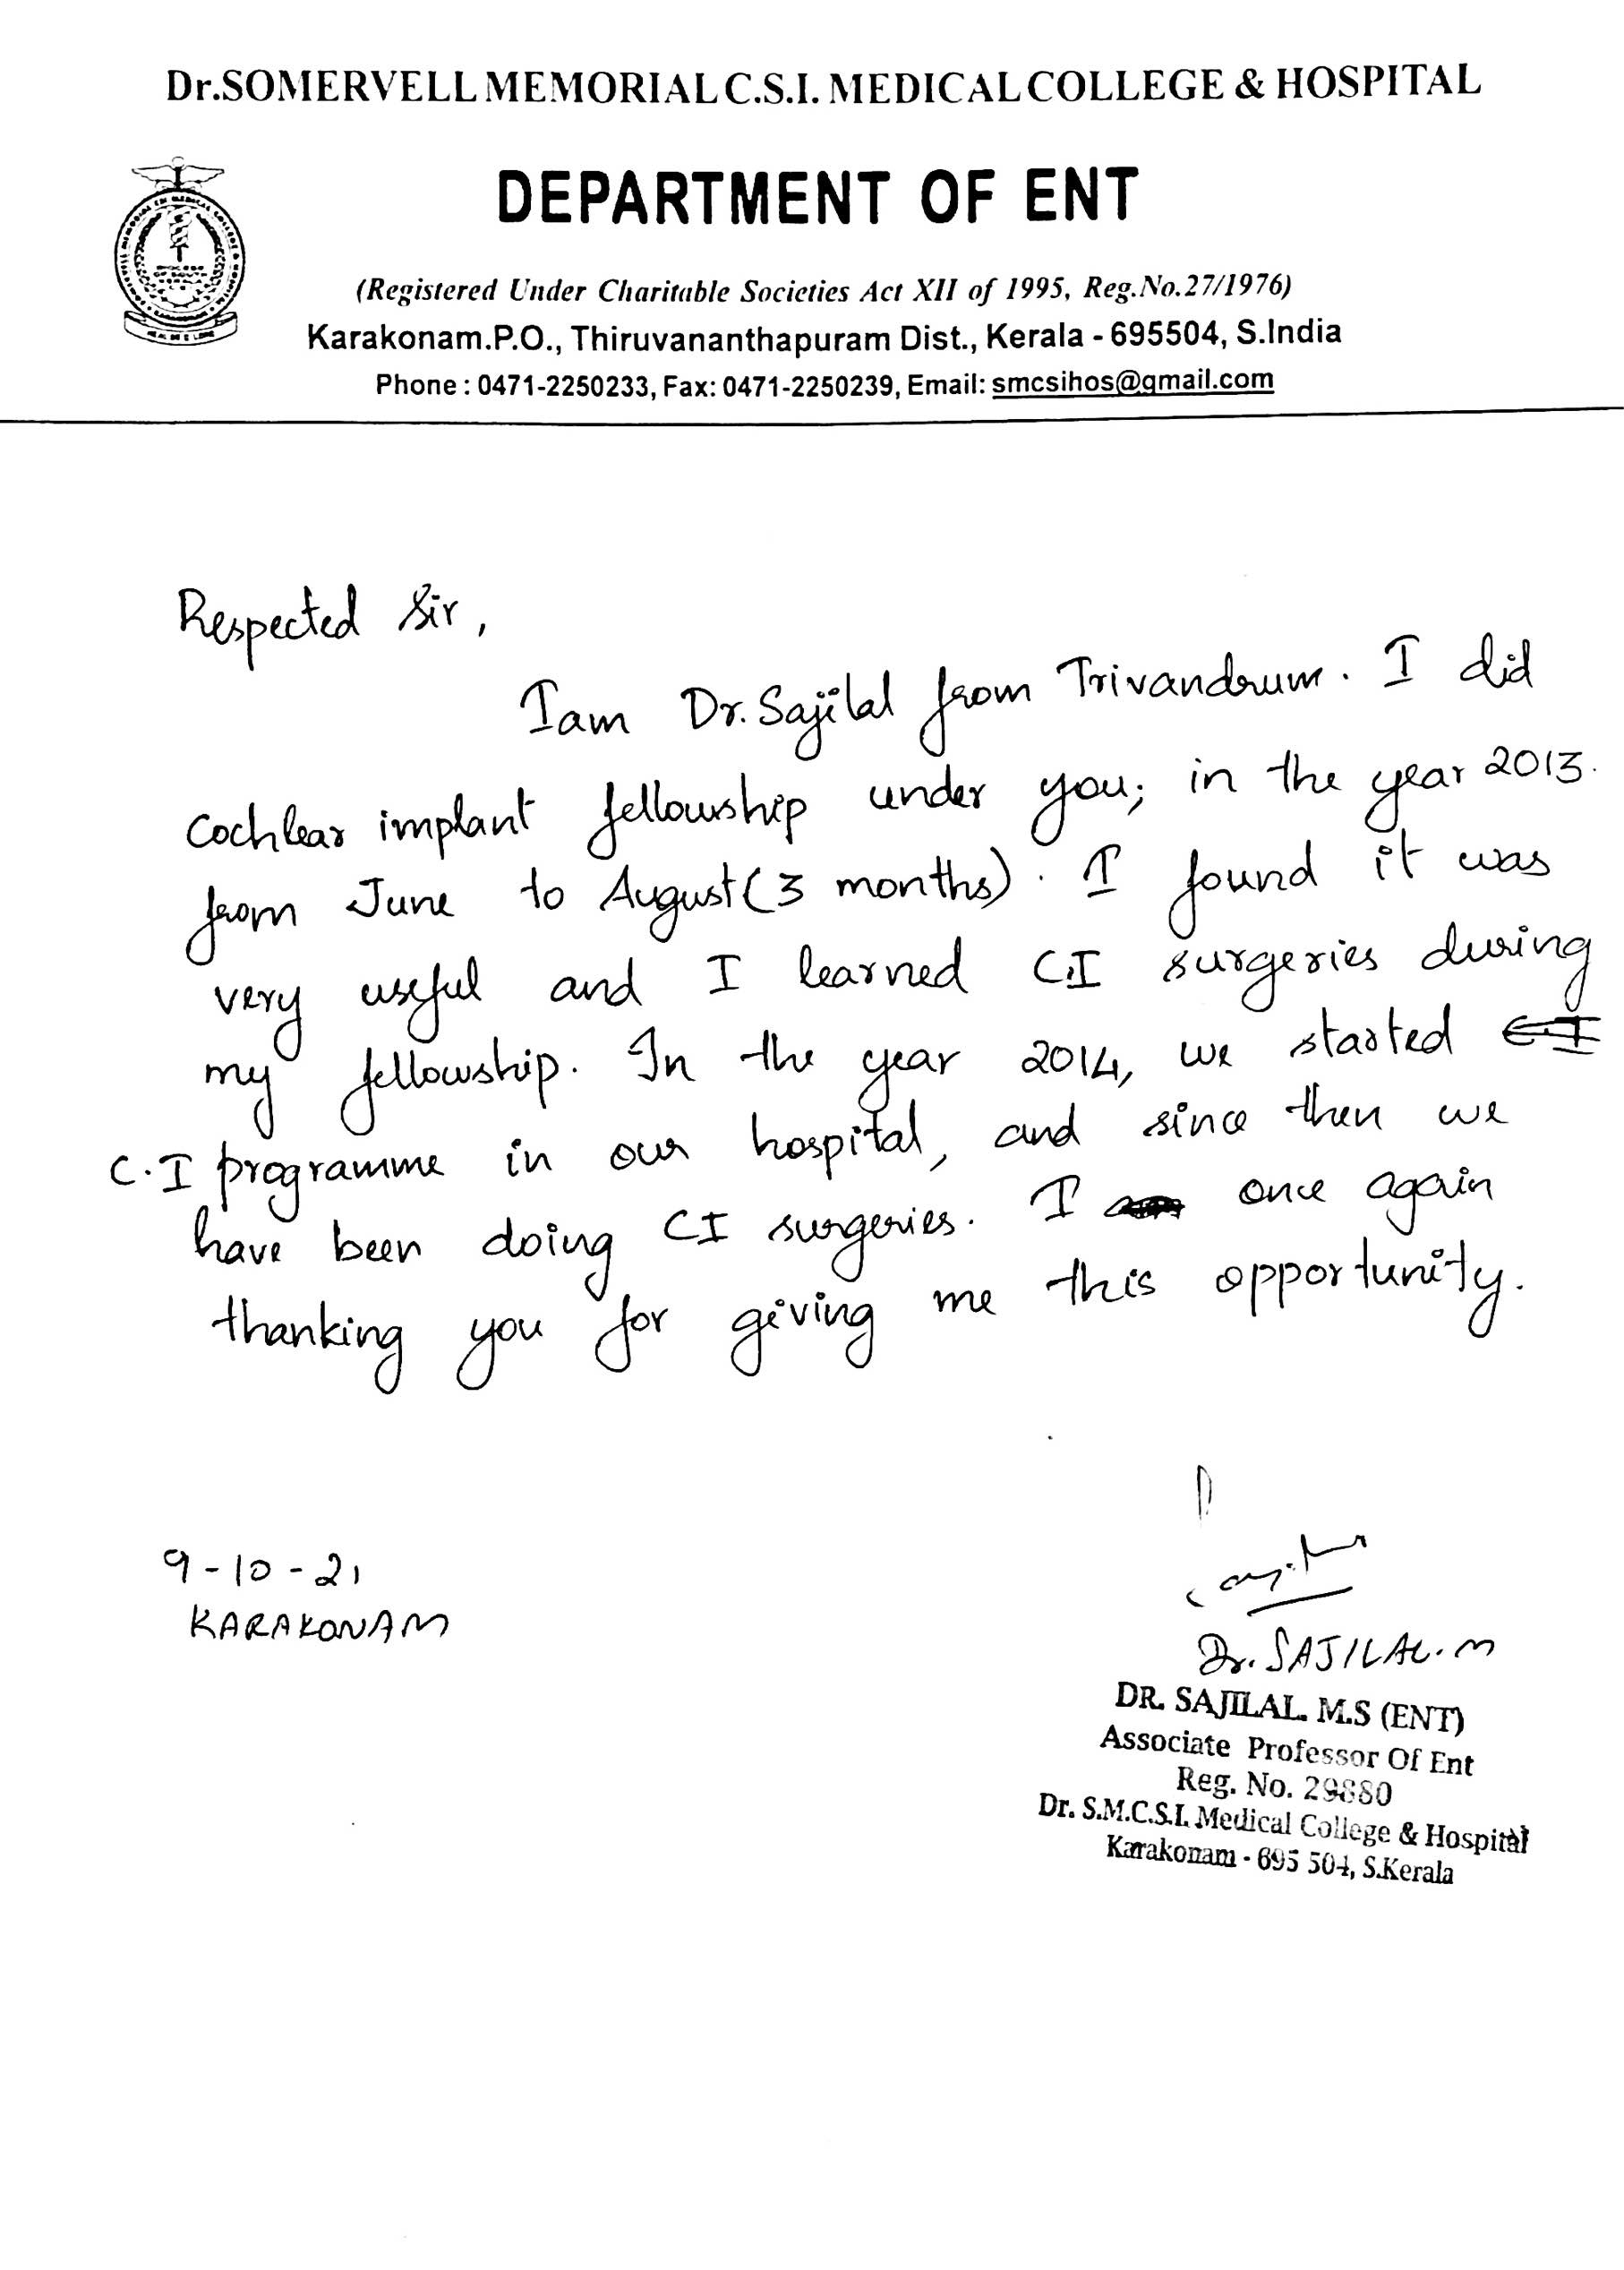 Dr.SOMERVELL MEMORIAL C.S.I. MEDICAL COLLEGE & HOSPITAL
DEPARTMENT OF ENT
(Registered Under Charitable Societies Act XII of 1995, Reg.No.27/1976)
Karakonam.P.O., Thiruvananthapuram Dist., Kerala - 695504, S.India
Phone : 0471-2250233, Fax: 0471-2250239, Email: smcsihos@gmail.com
Respected Sir,
Iam Dr. Sajilal from Trivandrum. I did
Cochlear implant fellowship under you; in the year 2013.
from June to August (3 months). I found it was
very useful and I learned C.I surgeries during
my fellowship. In the year 2014, we started
C.I programme in our hospital, and since then we
have been doing CI surgeries. I once again
thanking you for giving me this opportunity.
9-10-21
KARAKONAM
Dr. SAJILAL. M
DR. SAJILAL. M.S (ENT)
Associate Professor Of Ent
Reg. No. 29880
Dr. S.M.C.S.I. Medical College & Hospital
Karakonam - 695 504, S.Kerala